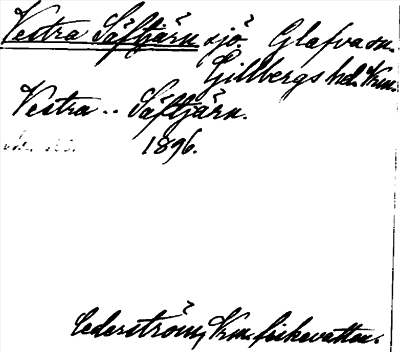 Vestra Säftjärn sjö. Glafva sn.
Gillbergs hd. Vrm.
Vestra .. Säftjärn.
1896.
Cederström, Vrm. fiskevatten.